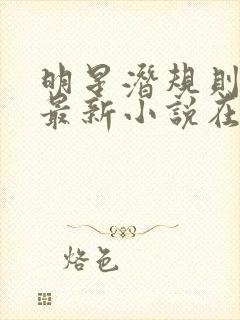 明星潜规则
最新小说在
烙色